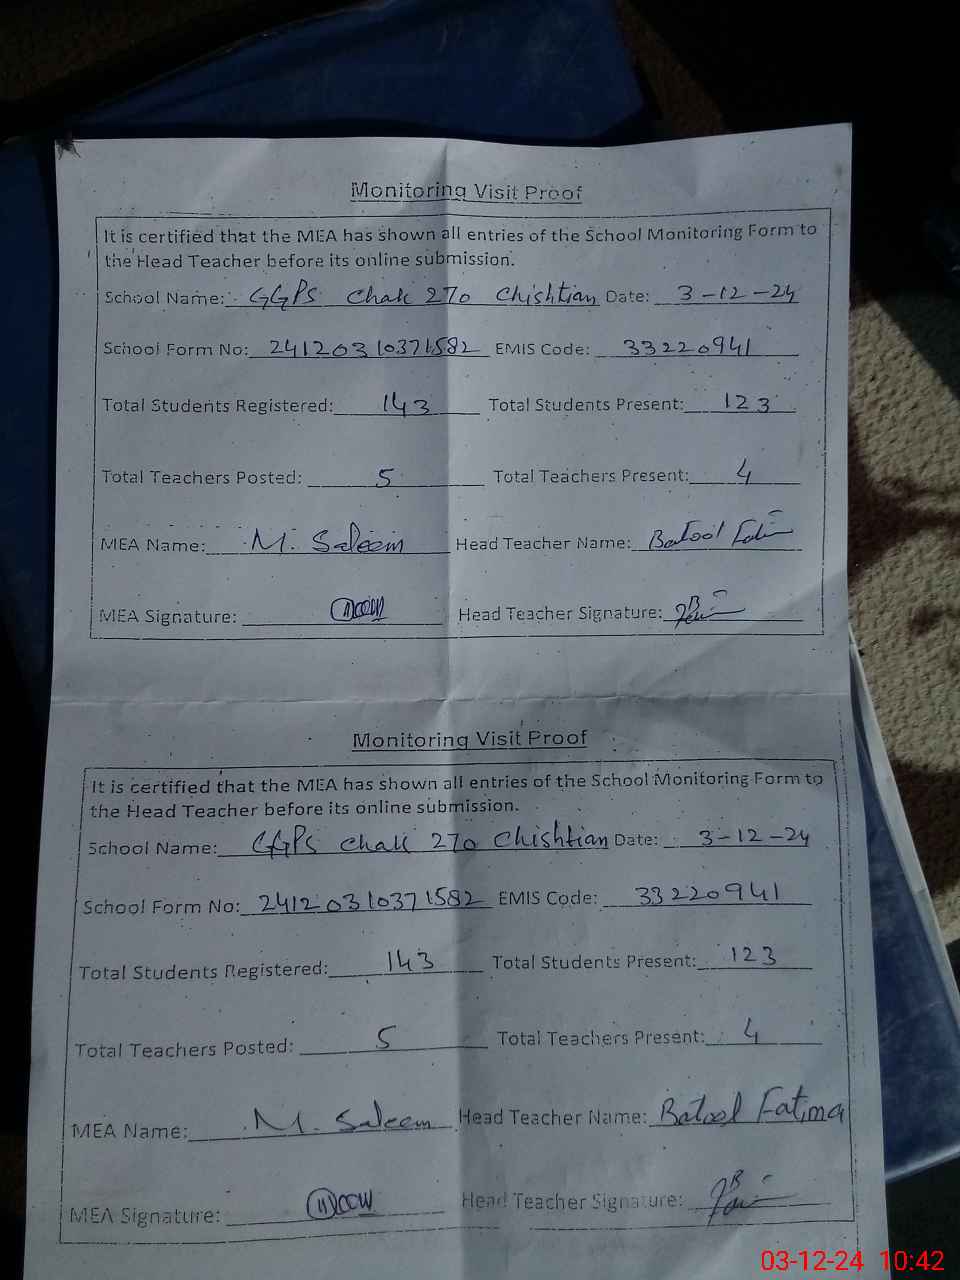 Monitoring Visit Proof
It is certified that the MEA has shown all entries of the School Monitoring Form to
the Head Teacher before its online submission.
School Name: GGPS Chak 270 Chishtian Date: 3-12-24
School Form No: 24120310371582 EMIS Code: 33220941
Total Students Registered: 143 Total Students Present: 123
Total Teachers Posted: 5 Total Teachers Present: 4
MEA Name: M. Saleem Head Teacher Name: Batool
MEA Signature: Head Teacher Signature:
Monitoring Visit Proof
It is certified that the MEA has shown all entries of the School Monitoring Form to
the Head Teacher before its online submission.
School Name: GGPS Chak 270 Chishtian Date: 3-12-24
School Form No: 24120310371582 EMIS Code: 33220941
Total Students Registered: 143 Total Students Present: 123
Total Teachers Posted: 5 Total Teachers Present: 4
MEA Name: M. Saleem Head Teacher Name: Batool Fatima
MEA Signature: Head Teacher Signature:
03-12-24 10:42